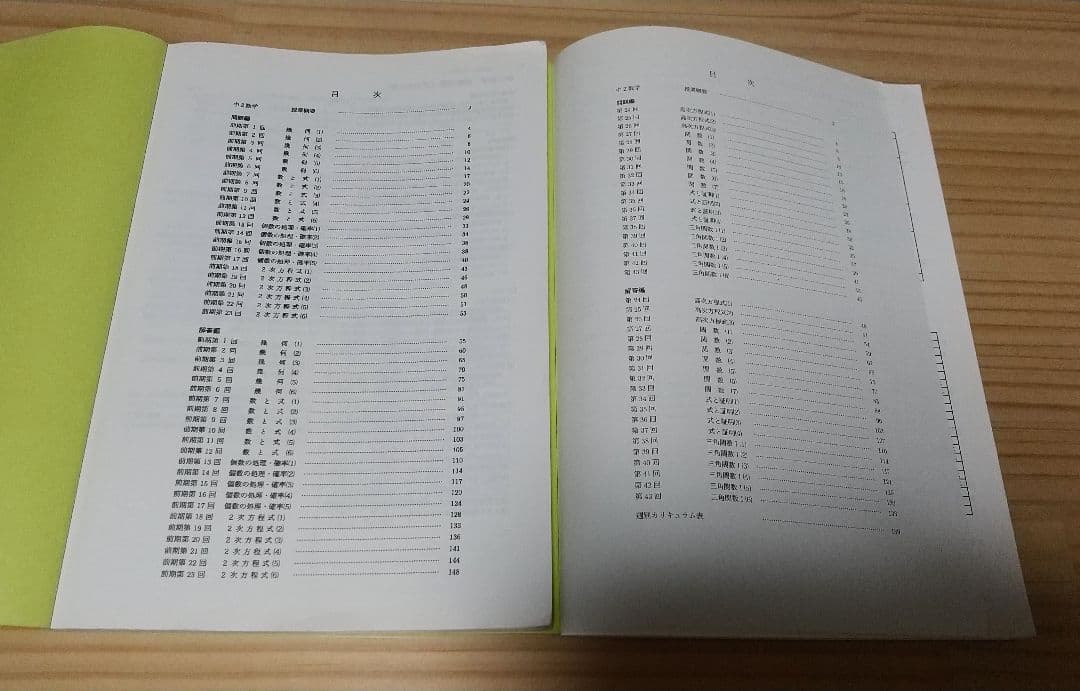 目 次
中2数学 授業綱領
問題編
前期第 1 回 幾 何 (1) 4
前期第 2 回 幾 何 (2) 6
前期第 3 回 幾 何 (3) 8
前期第 4 回 幾 何 (4) 10
前期第 5 回 幾 何 (5) 12
前期第 6 回 幾 何 (6) 14
前期第 7 回 数 と 式 (1) 17
前期第 8 回 数 と 式 (2) 20
前期第 9 回 数 と 式 (3) 22
前期第 10 回 数 と 式 (4) 24
前期第 11 回 数 と 式 (5) 26
前期第 12 回 数 と 式 (6) 29
前期第 13 回 個数の処理・確率(1) 31
前期第 14 回 個数の処理・確率(2) 34
前期第 15 回 個数の処理・確率(3) 36
前期第 16 回 個数の処理・確率(4) 38
前期第 17 回 個数の処理・確率(5) 40
前期第 18 回 2 次 方 程 式 (1)
前期第 19 回 2 次 方 程 式 (2)
前期第 20 回 2 次 方 程 式 (3) 48
前期第 21 回 2 次 方 程 式 (4) 50
前期第 22 回 2 次 方 程 式 (5) 51
前期第 23 回 2 次 方 程 式 (6) 53
解答編
前期第 1 回 幾 何 (1) 55
前期第 2 回 幾 何 (2) 60
前期第 3 回 幾 何 (3) 65
前期第 4 回 幾 何 (4) 70
前期第 5 回 幾 何 (5) 75
前期第 6 回 幾 何 (6)
前期第 7 回 数 と 式 (1) 91
前期第 8 回 数 と 式 (2) 95
前期第 9 回 数 と 式 (3) 97
前期第 10 回 数 と 式 (4) 100
前期第 11 回 数 と 式 (5) 103
前期第 12 回 数 と 式 (6) 105
前期第 13 回 個数の処理・確率(1) 110
前期第 14 回 個数の処理・確率(2) 114
前期第 15 回 個数の処理・確率(3) 117
前期第 16 回 個数の処理・確率(4) 120
前期第 17 回 個数の処理・確率(5) 124
前期第 18 回 2 次 方 程 式 (1) 128
前期第 19 回 2 次 方 程 式 (2) 133
前期第 20 回 2 次 方 程 式 (3) 136
前期第 21 回 2 次 方 程 式 (4) 141
前期第 22 回 2 次 方 程 式 (5) 144
前期第 23 回 2 次 方 程 式 (6) 148
目 次
中2数学 授業綱領
問題編
第 24 回 高次方程式(1)
第 25 回 高次方程式(2)
第 26 回 高次方程式(3)
第 27 回 関 数 (1)
第 28 回 関 数 (2)
第 29 回 関 数 (3)
第 30 回 関 数 (4)
第 31 回 関 数 (5)
第 32 回 関 数 (6)
第 33 回 関 数 (7)
第 34 回 式と証明(1)
第 35 回 式と証明(2)
第 36 回 式と証明(3)
第 37 回 式と証明(4)
第 38 回 三角関数 I (1)
第 39 回 三角関数 I (2)
第 40 回 三角関数 I (3)
第 41 回 三角関数 I (4)
第 42 回 三角関数 I (5)
第 43 回 三角関数 I (6)
解答編
第 24 回 高次方程式(1)
第 25 回 高次方程式(2)
第 26 回 高次方程式(3)
第 27 回 関 数 (1)
第 28 回 関 数 (2)
第 29 回 関 数 (3)
第 30 回 関 数 (4)
第 31 回 関 数 (5)
第 32 回 関 数 (6)
第 33 回 関 数 (7)
第 34 回 式と証明(1)
第 35 回 式と証明(2)
第 36 回 式と証明(3)
第 37 回 式と証明(4)
第 38 回 三角関数 I (1)
第 39 回 三角関数 I (2)
第 40 回 三角関数 I (3)
第 41 回 三角関数 I (4)
第 42 回 三角関数 I (5)
第 43 回 三角関数 I (6)
週別カリキュラム表